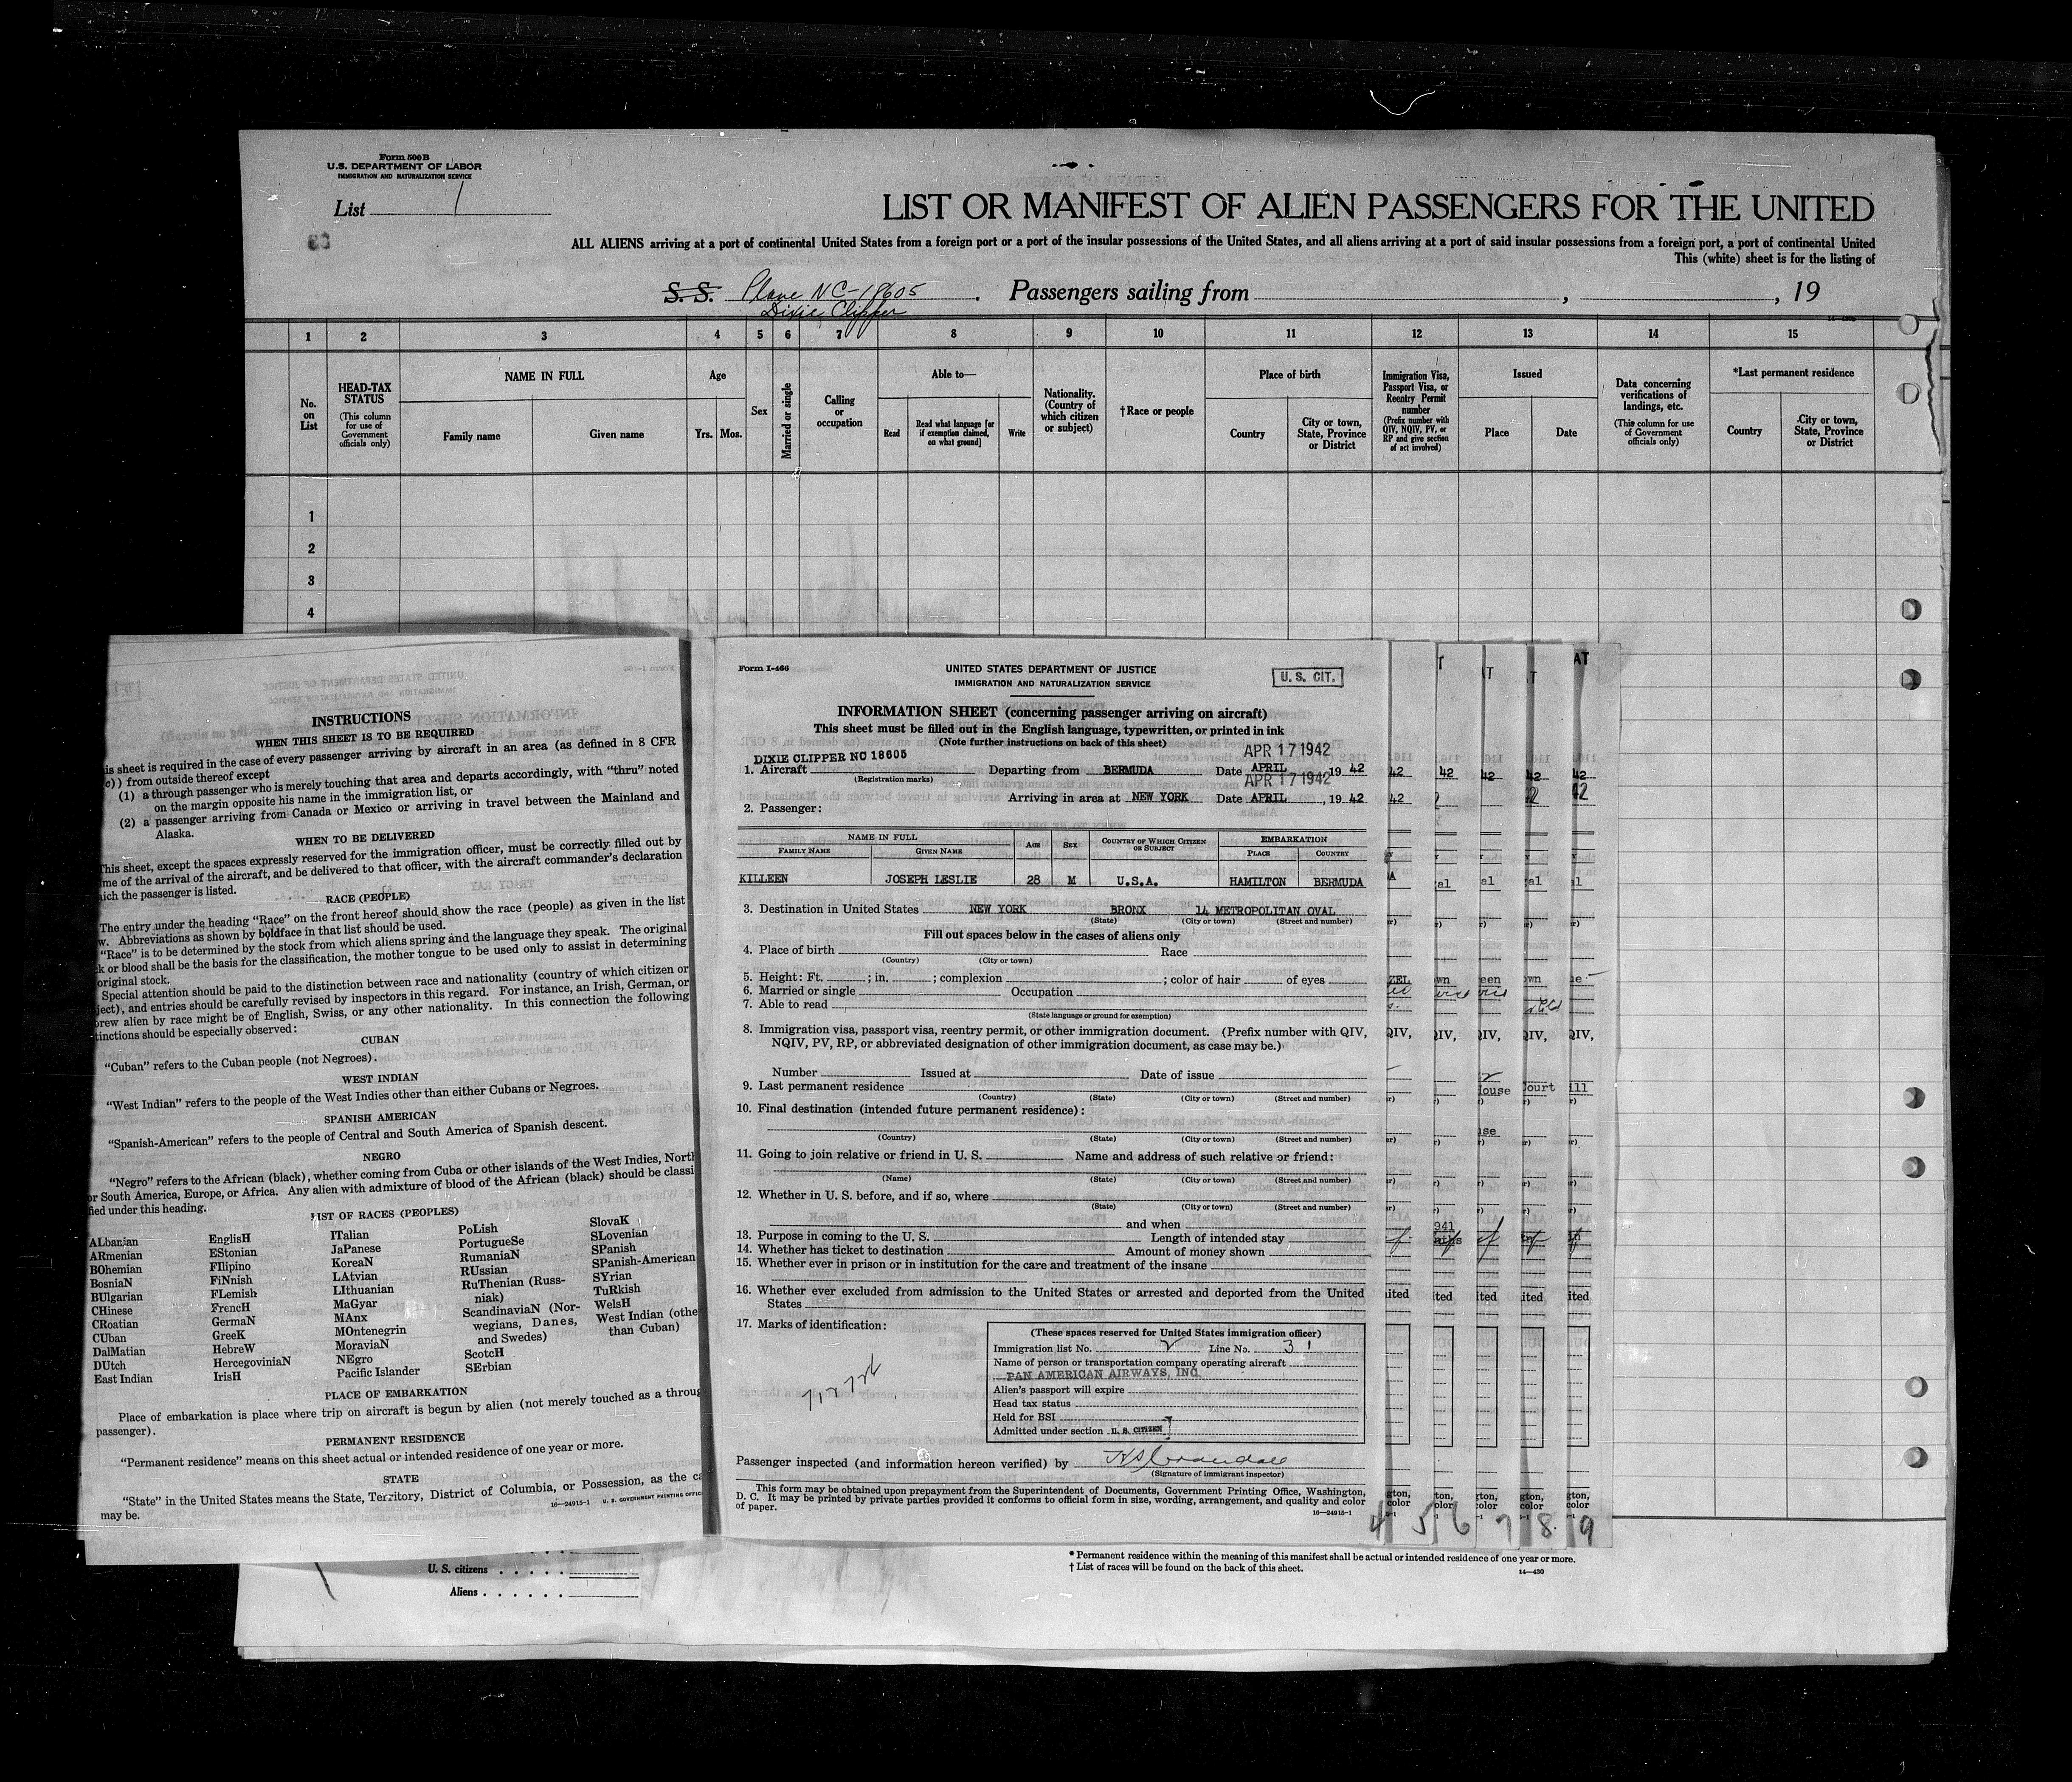 Form 500B
U.S. DEPARTMENT OF LABOR
IMMIGRATION AND NATURALIZATION SERVICE
List 1
LIST OR MANIFEST OF ALIEN PASSENGERS FOR THE UNITED
ALL ALIENS arriving at a port of continental United States from a foreign port or a port of the insular possessions of the United States, and all aliens arriving at a port of said insular possessions from a foreign port, a port of continental United
This (white) sheet is for the listing of
S. S. Plane NC-18605 Passengers sailing from , , 19
Dixie Clipper
1 2 3 4 5 6 7 8 9 10 11 12 13 14 15
No. on List
HEAD-TAX STATUS
(This column for use of Government officials only)
NAME IN FULL
Family name Given name
Age
Yrs. Mos.
Sex
Married or single
Calling or occupation
Able to—
Read
Read what language [or if exemption claimed, on what ground]
Write
Nationality. (Country of which citizen or subject)
† Race or people
Place of birth
Country
City or town, State, Province or District
Immigration Visa, Passport Visa, or Reentry Permit number
(Prefix number with QIV, NQIV, PV, or RP and give section of act involved)
Issued
Place Date
Data concerning verifications of landings, etc.
(This column for use of Government officials only)
*Last permanent residence
Country
City or town, State, Province or District
1
2
3
4
INSTRUCTIONS
WHEN THIS SHEET IS TO BE REQUIRED
is sheet is required in the case of every passenger arriving by aircraft in an area (as defined in 8 CFR
c)) from outside thereof except
(1) a through passenger who is merely touching that area and departs accordingly, with “thru” noted
on the margin opposite his name in the immigration list, or
(2) a passenger arriving from Canada or Mexico or arriving in travel between the Mainland and
Alaska.
WHEN TO BE DELIVERED
This sheet, except the spaces expressly reserved for the immigration officer, must be correctly filled out by
me of the arrival of the aircraft, and be delivered to that officer, with the aircraft commander's declaration
ich the passenger is listed.
RACE (PEOPLE)
The entry under the heading “Race” on the front hereof should show the race (people) as given in the list
w. Abbreviations as shown by boldface in that list should be used.
“Race” is to be determined by the stock from which aliens spring and the language they speak. The original
k or blood shall be the basis for the classification, the mother tongue to be used only to assist in determining
original stock.
Special attention should be paid to the distinction between race and nationality (country of which citizen or
ject), and entries should be carefully revised by inspectors in this regard. For instance, an Irish, German, or
rew alien by race might be of English, Swiss, or any other nationality. In this connection the following
tinctions should be especially observed:
CUBAN
“Cuban” refers to the Cuban people (not Negroes).
WEST INDIAN
“West Indian” refers to the people of the West Indies other than either Cubans or Negroes.
SPANISH AMERICAN
“Spanish-American” refers to the people of Central and South America of Spanish descent.
NEGRO
“Negro” refers to the African (black), whether coming from Cuba or other islands of the West Indies, North
or South America, Europe, or Africa. Any alien with admixture of blood of the African (black) should be classi
fied under this heading.
LIST OF RACES (PEOPLES)
ALbanian
ARmenian
BOhemian
BosniaN
BUlgarian
CHinese
CRoatian
CUban
DalMatian
DUtch
East Indian
EnglisH
EStonian
FIlipino
FiNnish
FLemish
FrencH
GermaN
GreeK
HebreW
HercegoviniaN
IrisH
ITalian
JaPanese
KoreaN
LAtvian
LIthuanian
MaGyar
MAnx
MOntenegrin
MoraviaN
NEgro
Pacific Islander
PoLish
PortugueSe
RumaniaN
RUssian
RuThenian (Russ-
niak)
ScandinaviaN (Nor-
wegians, Danes,
and Swedes)
ScotcH
SErbian
SlovaK
SLovenian
SPanish
SPanish-American
SYrian
TuRkish
WelsH
West Indian (othe
than Cuban)
PLACE OF EMBARKATION
Place of embarkation is place where trip on aircraft is begun by alien (not merely touched as a throug
passenger).
PERMANENT RESIDENCE
“Permanent residence” means on this sheet actual or intended residence of one year or more.
STATE
“State” in the United States means the State, Territory, District of Columbia, or Possession, as the ca
may be.
16—24915-1 U. S. GOVERNMENT PRINTING OFFIC
Form I-466
UNITED STATES DEPARTMENT OF JUSTICE
IMMIGRATION AND NATURALIZATION SERVICE
U. S. CIT.
INFORMATION SHEET (concerning passenger arriving on aircraft)
This sheet must be filled out in the English language, typewritten, or printed in ink
(Note further instructions on back of this sheet)
APR 17 1942
DIXIE CLIPPER NC 18605
1. Aircraft Departing from BERMUDA Date APRIL 19 42
(Registration marks)
APR 17 1942
Arriving in area at NEW YORK Date APRIL , 19 42
2. Passenger:
NAME IN FULL
FAMILY NAME GIVEN NAME AGE SEX COUNTRY OF WHICH CITIZEN OR SUBJECT
EMBARKATION
PLACE COUNTRY
KILLEEN JOSEPH LESLIE 28 M U.S.A. HAMILTON BERMUDA
3. Destination in United States NEW YORK BRONX 14 METROPOLITAN OVAL
(State) (City or town) (Street and number)
Fill out spaces below in the cases of aliens only
4. Place of birth Race
(Country) (City or town)
5. Height: Ft. ; in. ; complexion ; color of hair of eyes
6. Married or single Occupation
7. Able to read
(State language or ground for exemption)
8. Immigration visa, passport visa, reentry permit, or other immigration document. (Prefix number with QIV,
NQIV, PV, RP, or abbreviated designation of other immigration document, as case may be.)
Number Issued at Date of issue
9. Last permanent residence
(Country) (State) (City or town) (Street and number)
10. Final destination (intended future permanent residence):
(Country) (State) (City or town) (Street and number)
11. Going to join relative or friend in U. S. Name and address of such relative or friend:
(Name) (State) (City or town) (Street and number)
12. Whether in U. S. before, and if so, where
(State) (City or town) (Street and number)
and when
13. Purpose in coming to the U. S. Length of intended stay
14. Whether has ticket to destination Amount of money shown
15. Whether ever in prison or in institution for the care and treatment of the insane
16. Whether ever excluded from admission to the United States or arrested and deported from the United
States
17. Marks of identification:
(These spaces reserved for United States immigration officer)
Immigration list No. 2 Line No. 31
Name of person or transportation company operating aircraft
PAN AMERICAN AIRWAYS, INC.
Alien's passport will expire
Head tax status
Held for BSI
Admitted under section U. S. CITIZEN
Passenger inspected (and information hereon verified) by
(Signature of immigrant inspector)
This form may be obtained upon prepayment from the Superintendent of Documents, Government Printing Office, Washington,
D. C. It may be printed by private parties provided it conforms to official form in size, wording, arrangement, and quality and color
of paper.
16—24915-1
4 5 6 7 8 9
U. S. citizens
Aliens
* Permanent residence within the meaning of this manifest shall be actual or intended residence of one year or more.
† List of races will be found on the back of this sheet.
14—430